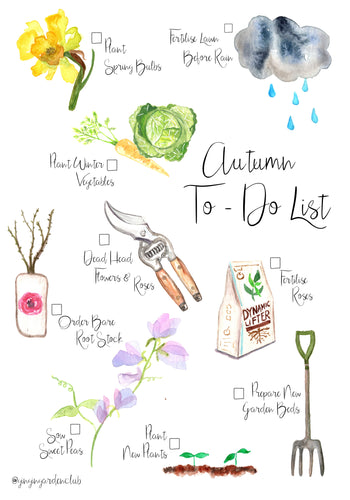 Plant
Spring Bulbs
Fertilise Lawn
Before Rain
Plant Winter
Vegetables
Autumn
To - Do List
Dead Head
Flowers &
Roses
Fertilise
Roses
DYNAMIC
LIFTER
Order Bare
Root Stock
Prepare New
Garden Beds
Sow
Sweet Peas
Plant
New Plants